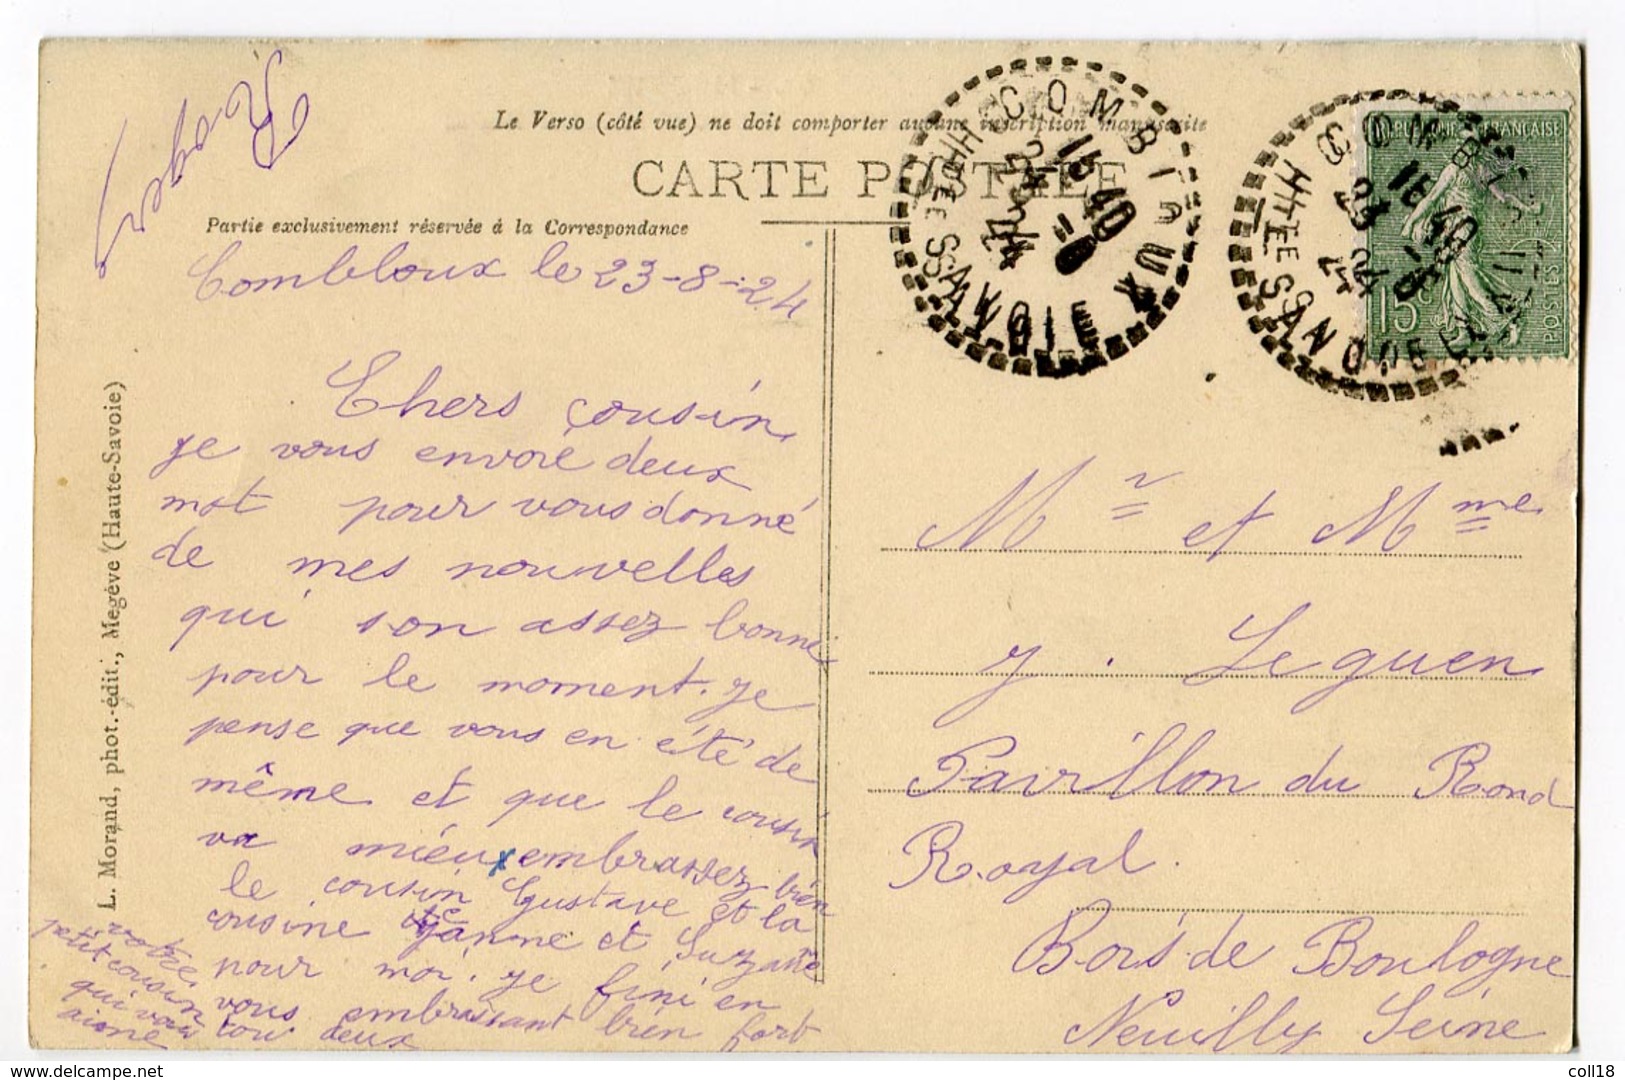 Le Verso (côté vue) ne doit comporter aucune inscription manuscrite
CARTE POSTALE
Partie exclusivement réservée à la Correspondance
Combloux le 23-8-24
Chers cousin
je vous envoie deux
mot pour vous donné
de mes nouvelles
qui son assez bonne
pour le moment. je
pense que vous en été de
même et que le cousin
va mieux embrassez bien
le cousin Gustave et la
cousine Jeanne et Suzanne
pour moi. je fini en
vous embrassant bien fort
tou deux
votre
petit cousin
qui vous
aime
Roger
L. Morand, phot.-édit., Megève (Haute-Savoie)
COMBLOUX
HTE SAVOIE
16 40
23 -8
24
COMBLOUX
HTE SAVOIE
16 40
23 -8
24
REPUBLIQUE FRANÇAISE
15c
POSTES
Mr et Mme
Y. Le guen
Pavillon du Rond
Royal.
Bois de Boulogne
Neuilly Seine
delcampe.net
coll18